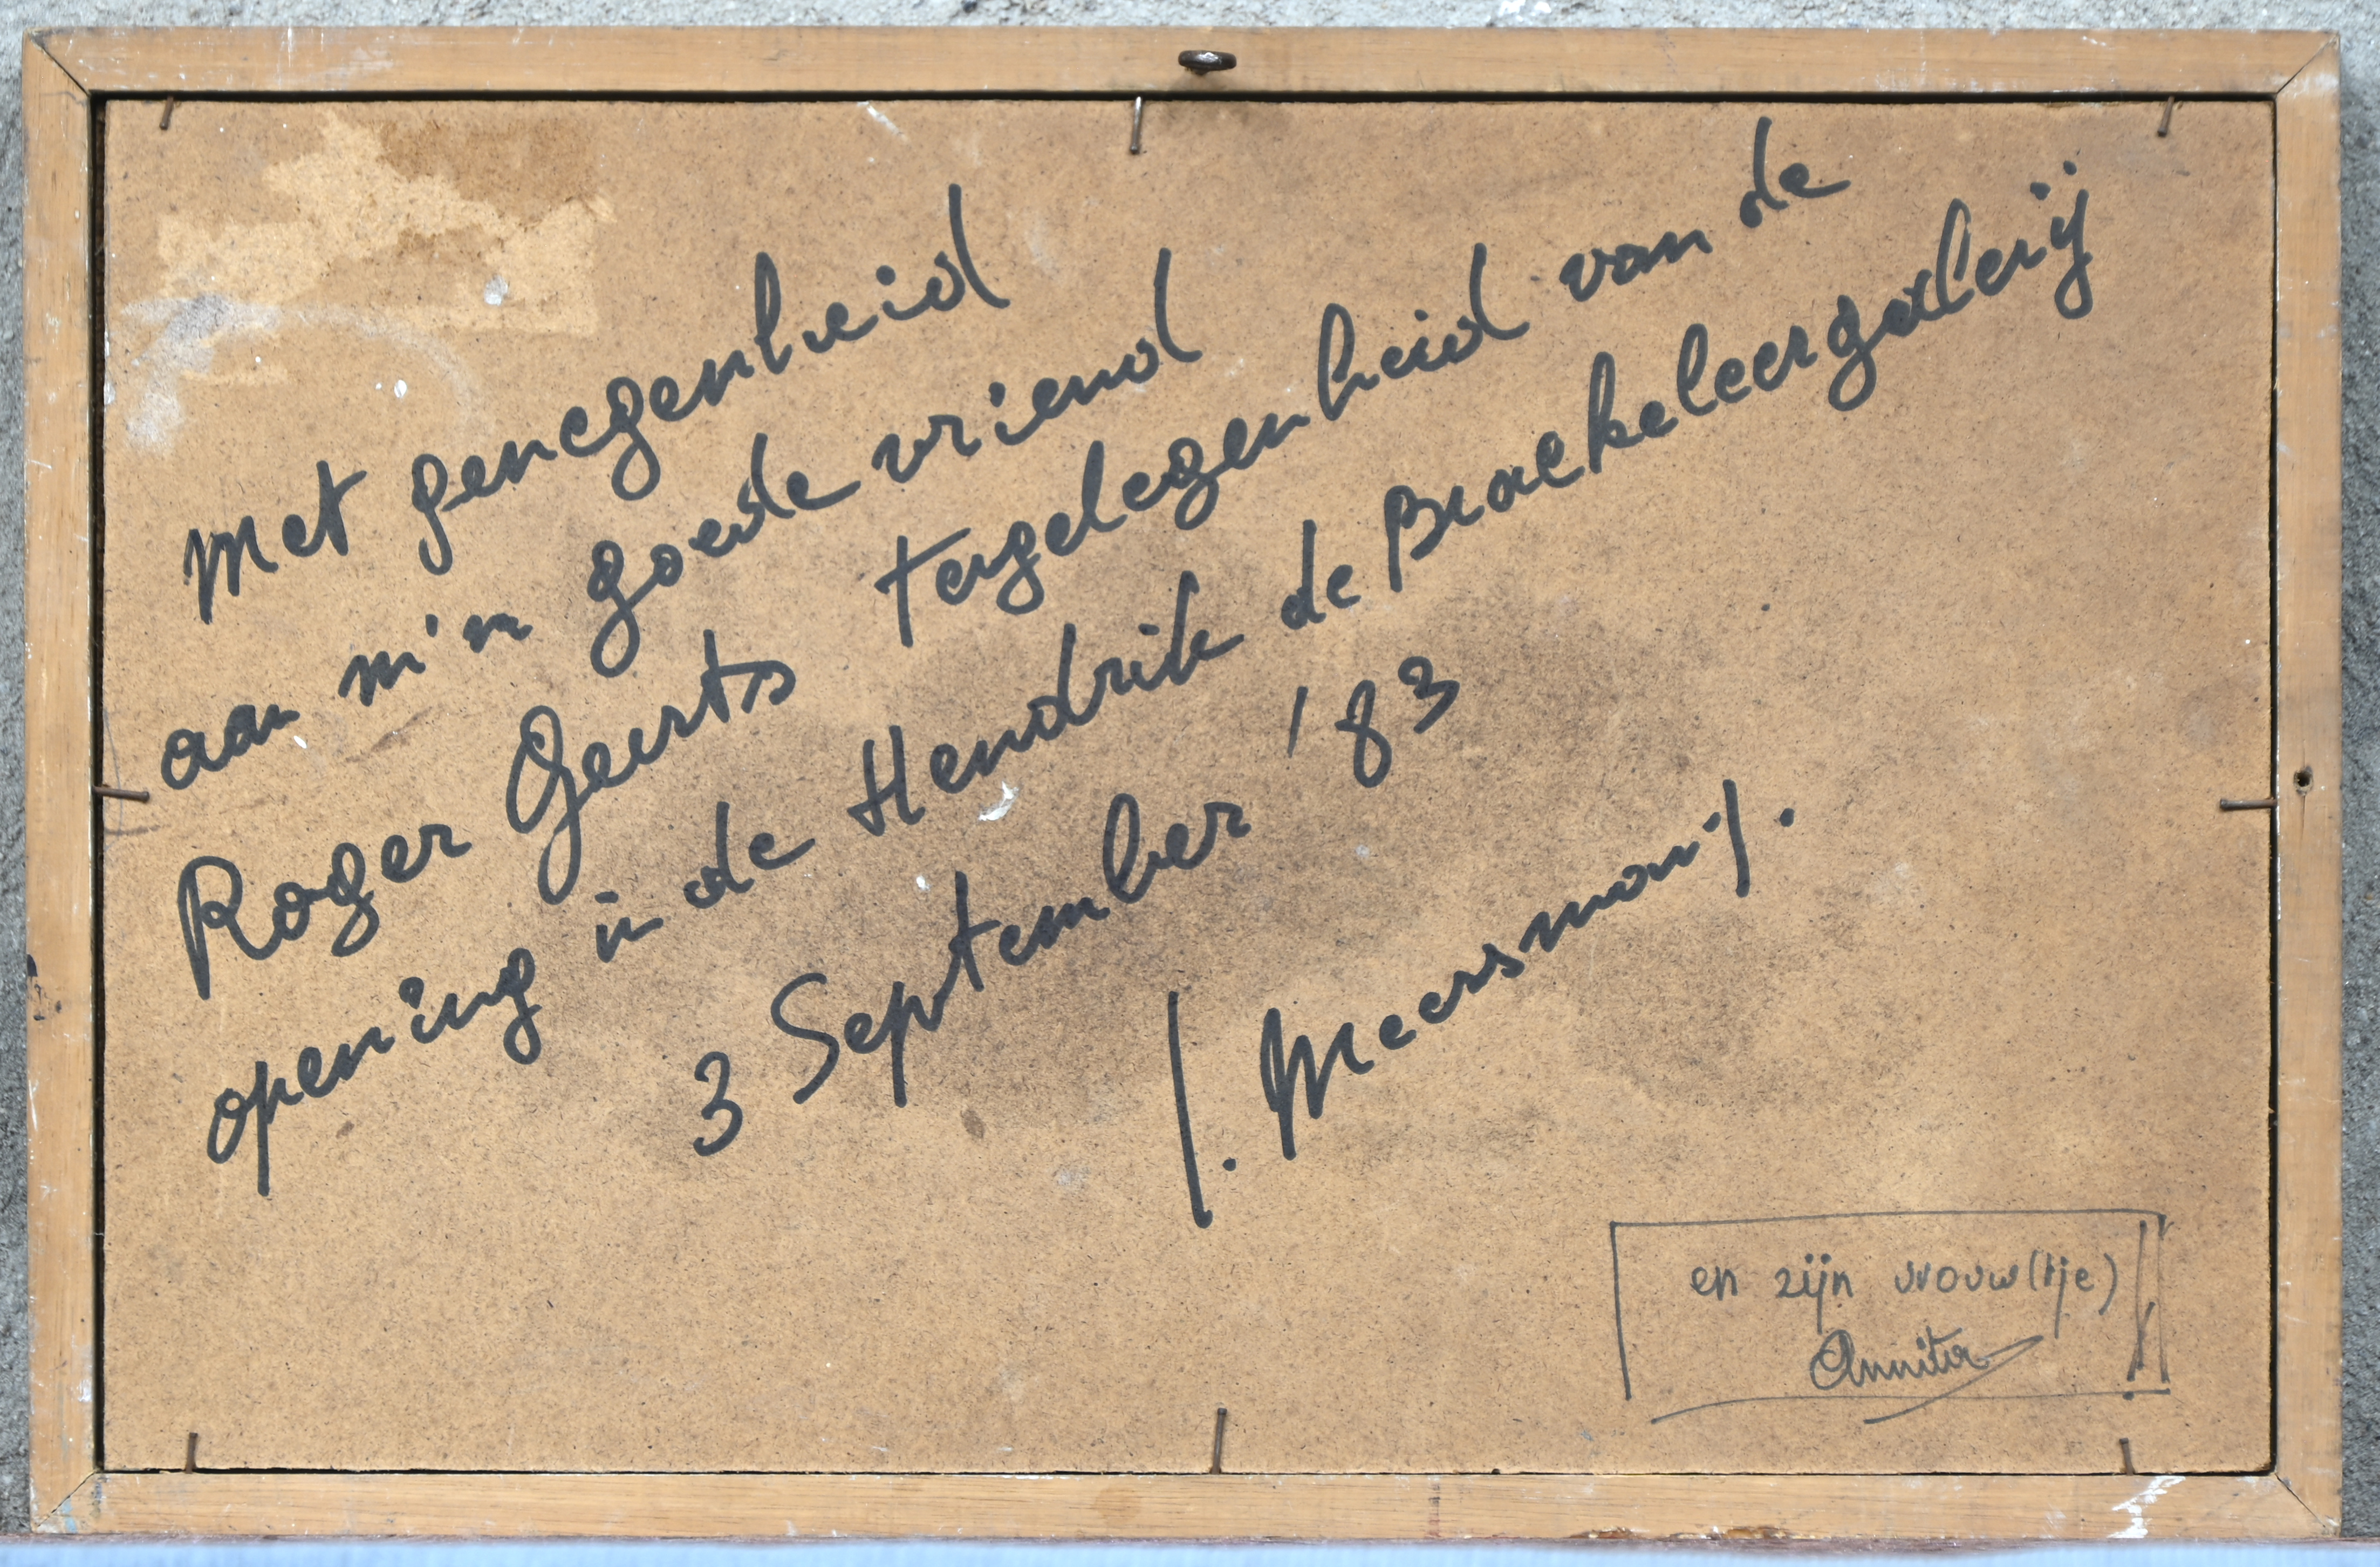 Met genegenheid
aan m'n goede vriend
Roger Geerts tergelegenheid van de
opening in de Hendrik de Braekeleergalerij
3 September '83
J. Meersman
en zijn vrouw(tje)
Annita